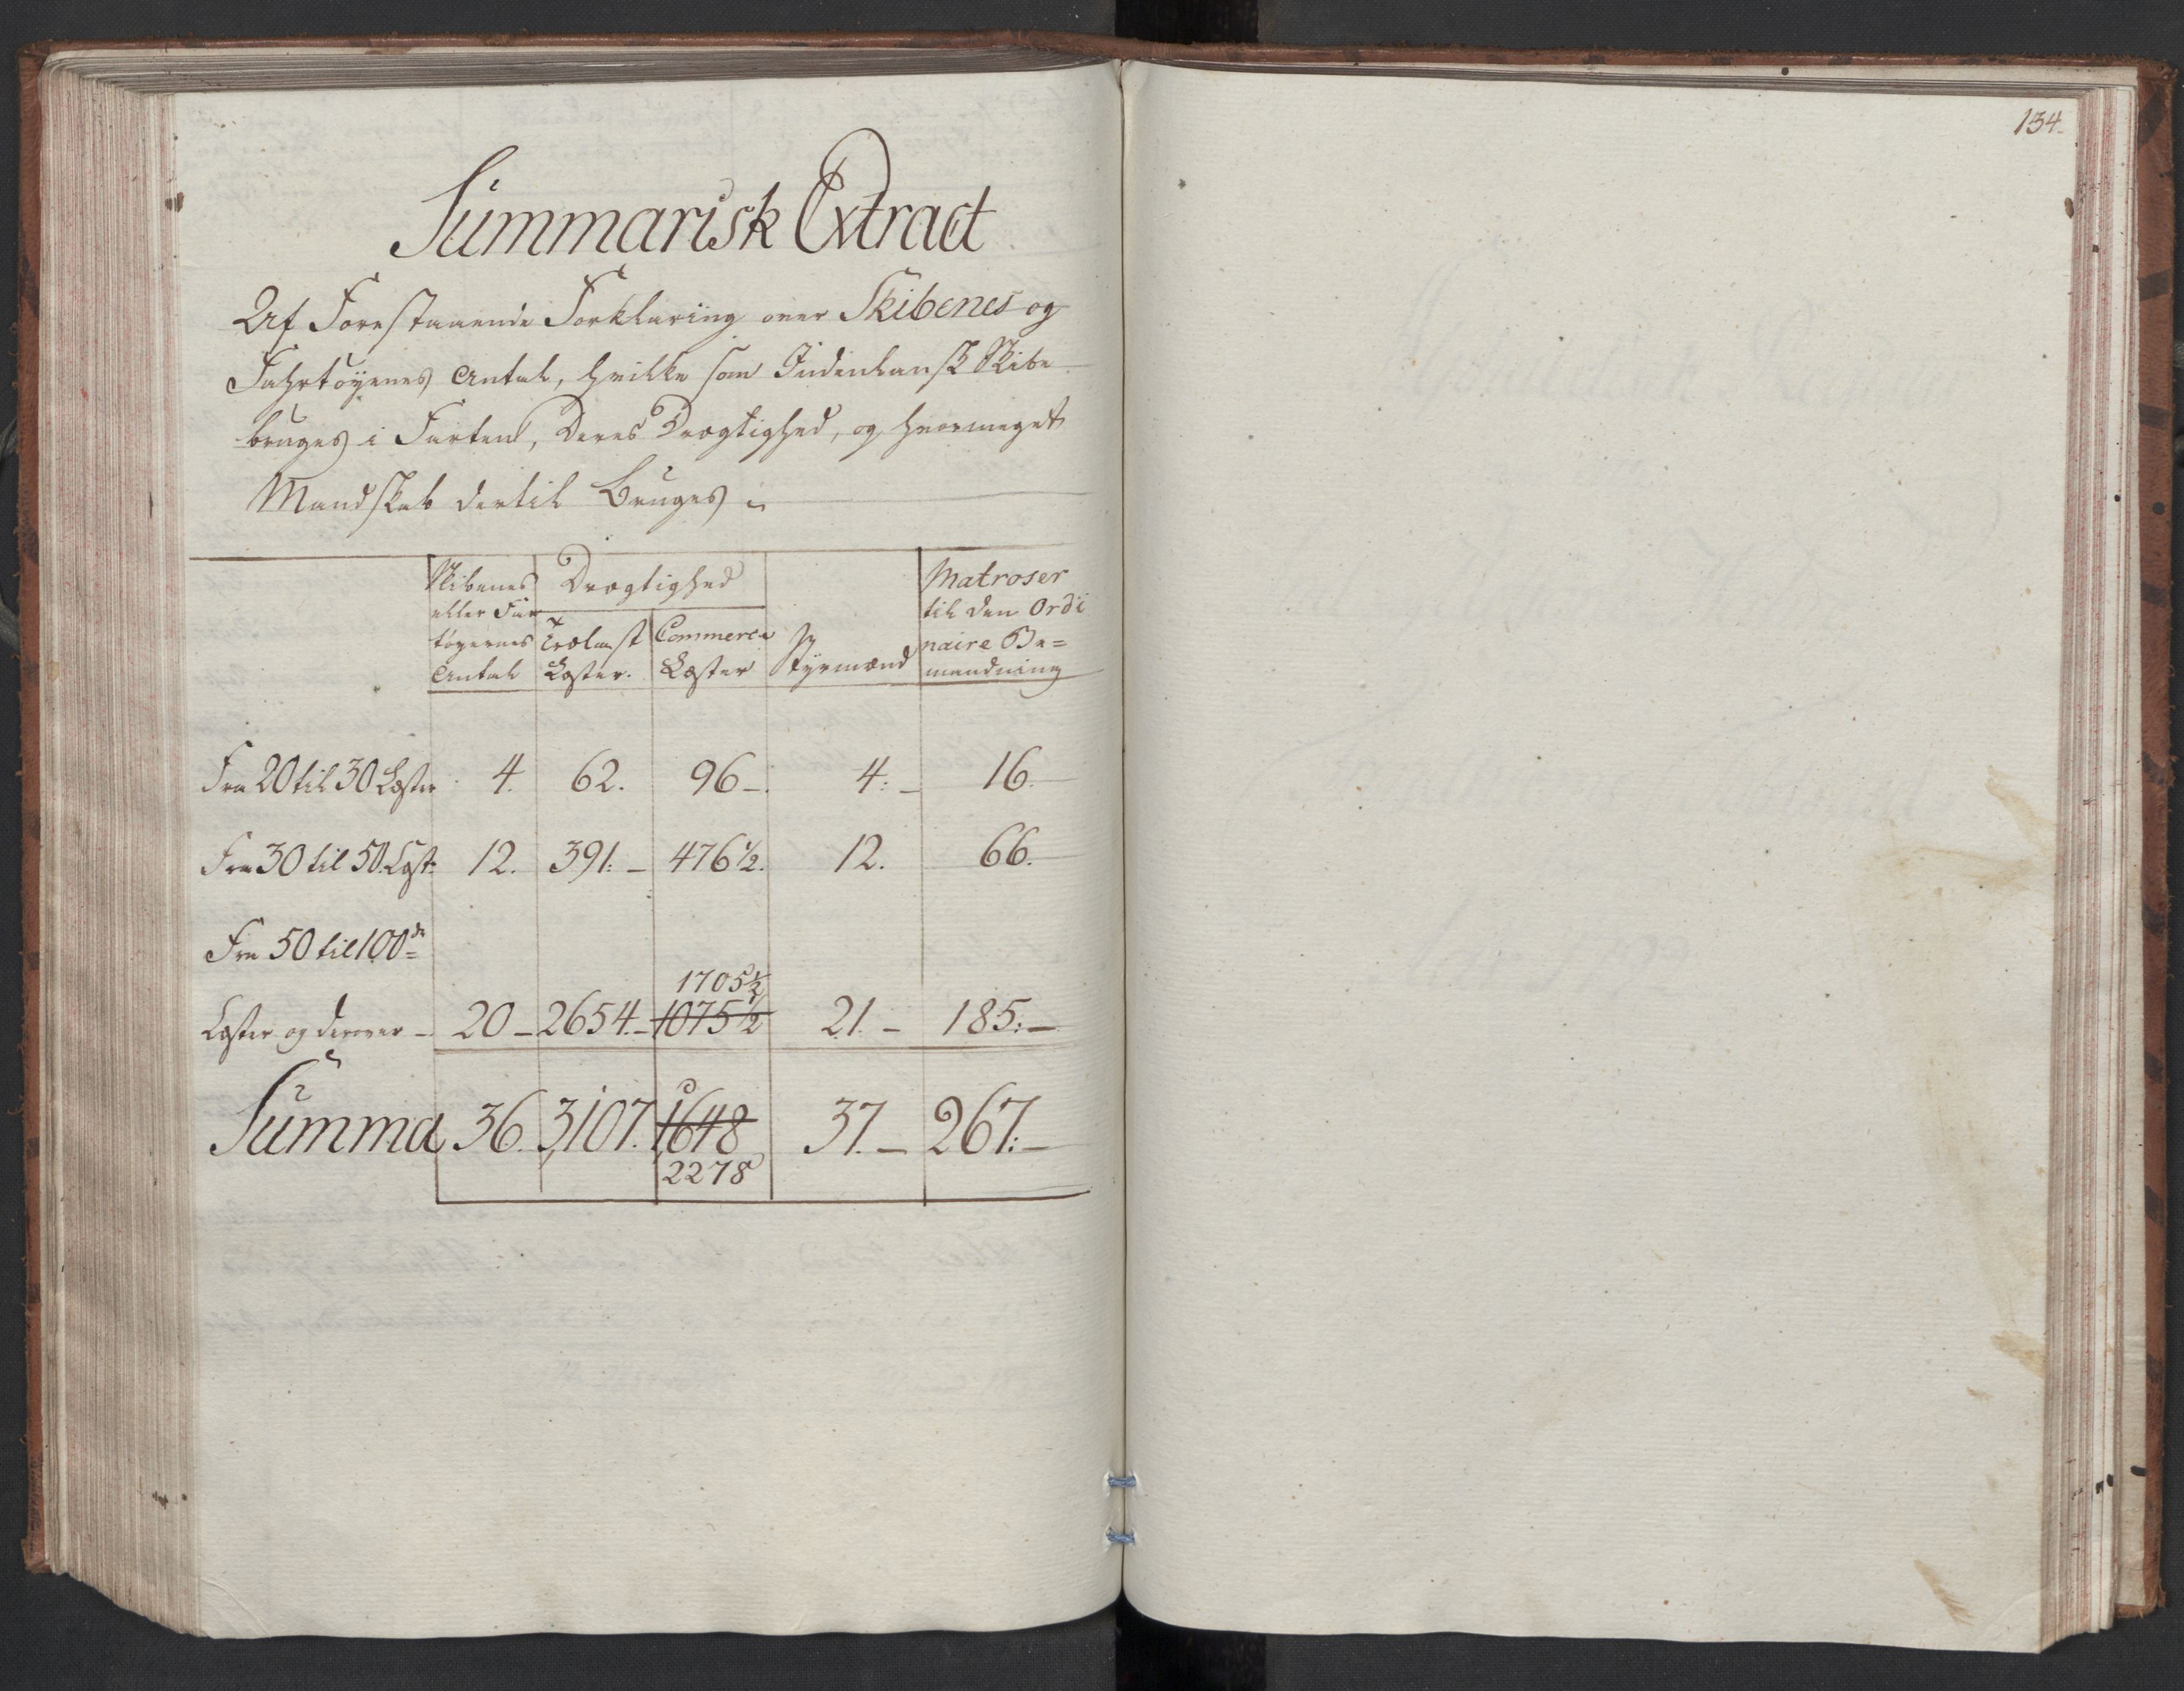 Summarisk Extract
Af Forestaaende Forklaring over Skibenes og
Fahrtøyenes Antal, hvilke som Indenlansk Skibe
bruges i Farten, Deres Drægtighed, og hvormeget
Mandskab dertil Bruges
Skibenes eller Far tøyernes Antal
Drægtighed
Trælast Læster.
Commerce Læster
Styrmænd
Matroser til den Ordi naire Be= mandning
Fra 20 til 30 Læster 4. 62. 96 – 4. – 16.
Fra 30 til 50 Læst: 12. 391. – 476½. 12. 66.
Fra 50 til 100de
1705½
Læster og derover – 20 – 2654. – 1075½ 21. – 185. –
Summa 36. 3,107. 1,648 37. – 267. –
2278
134.